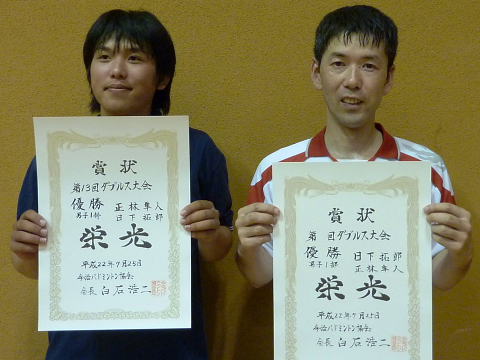 賞状
第13回ダブルス大会
優勝 正林隼人
男子1部 日下拓郎
栄光
平成22年7月25日
今治バドミントン協会
会長 白石浩二
賞状
第 回ダブルス大会
優勝 日下拓郎
男子1部 正林隼人
栄光
平成22年7月25日
今治バドミントン協会
会長 白石浩二